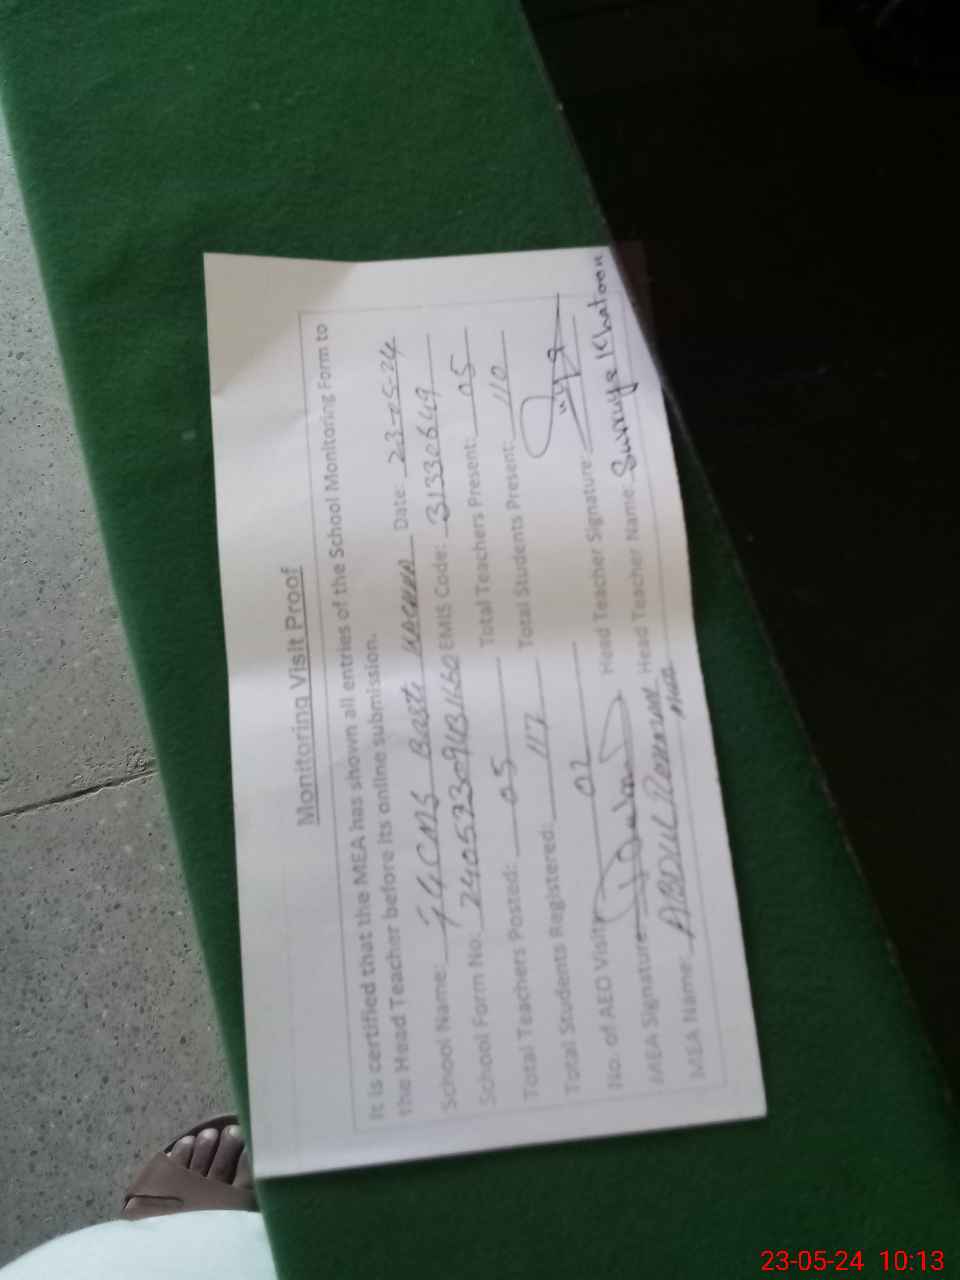 Monitoring Visit Proof
It is certified that the MEA has shown all entries of the School Monitoring Form to
the Head Teacher before its online submission.
School Name: Basti Date: 23-05-24
School Form No: EMIS Code: 31330649
Total Teachers Posted: 05 Total Teachers Present: 05
Total Students Registered: 117 Total Students Present: 110
No. of AEO Visit: 02 Head Teacher Signature:
MEA Signature Head Teacher Name: Surruya Khatoon
MEA Name: ABDUL Rehman MEA
23-05-24 10:13